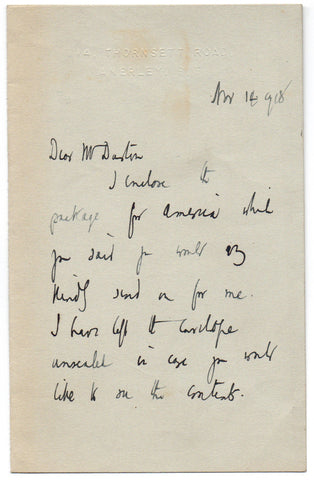 14, THORNSETT ROAD,
ANERLEY, S.E.
Nov 12 1918
Dear Mr Darton
I enclose the
package for America which
you said you would very
kindly send on for me.
I have left the envelope
unsealed in case you would
like to see the contents.